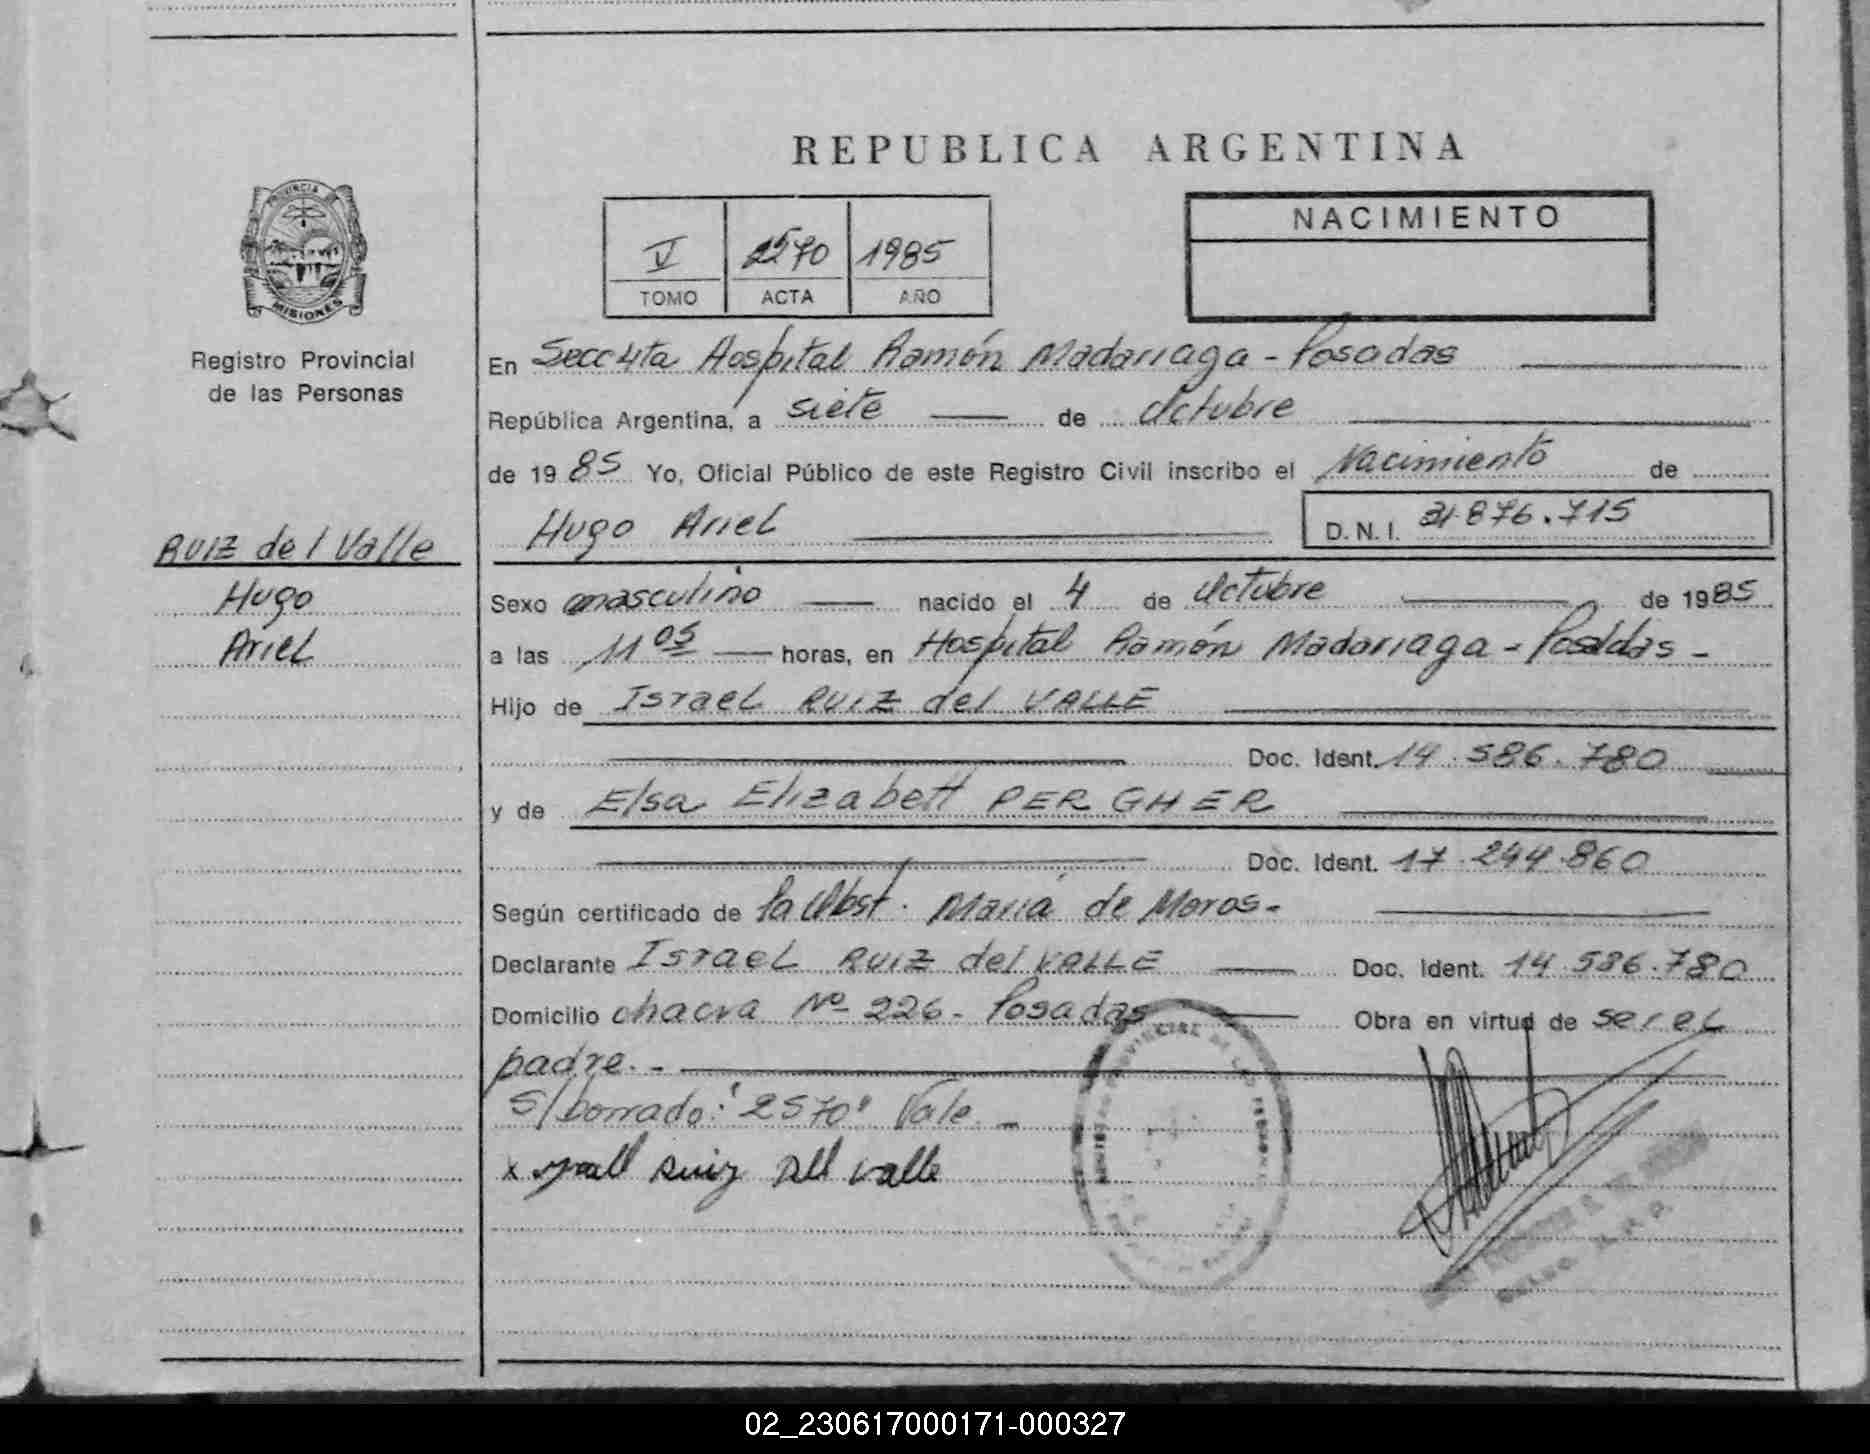 REPUBLICA ARGENTINA
PROVINCIA
MISIONES
Registro Provincial
de las Personas
RUIZ del Valle
Hugo
Ariel
V 2570 1985
TOMO ACTA AÑO
NACIMIENTO
En Secc 4ta Hospital Ramón Madariaga - Posadas
República Argentina, a siete de Octubre
de 1985 Yo, Oficial Público de este Registro Civil inscribo el Nacimiento de
Hugo Ariel D.N.I. 31.876.715
Sexo masculino nacido el 4 de Octubre de 1985
a las 11 05 horas, en Hospital Ramón Madariaga - Posadas -
Hijo de Israel RUIZ del VALLE
Doc. Ident. 14.586.780
y de Elsa Elizabett PERGHER
Doc. Ident. 17.244.860
Según certificado de la Obst. María de Moros -
Declarante Israel RUIZ del VALLE Doc. Ident. 14.586.780
Domicilio chacra Nº 226 - Posadas Obra en virtud de ser el
padre. -
S/borrado: "2570" Vale -
x Ysrall Ruiz Dell valle
02_230617000171-000327